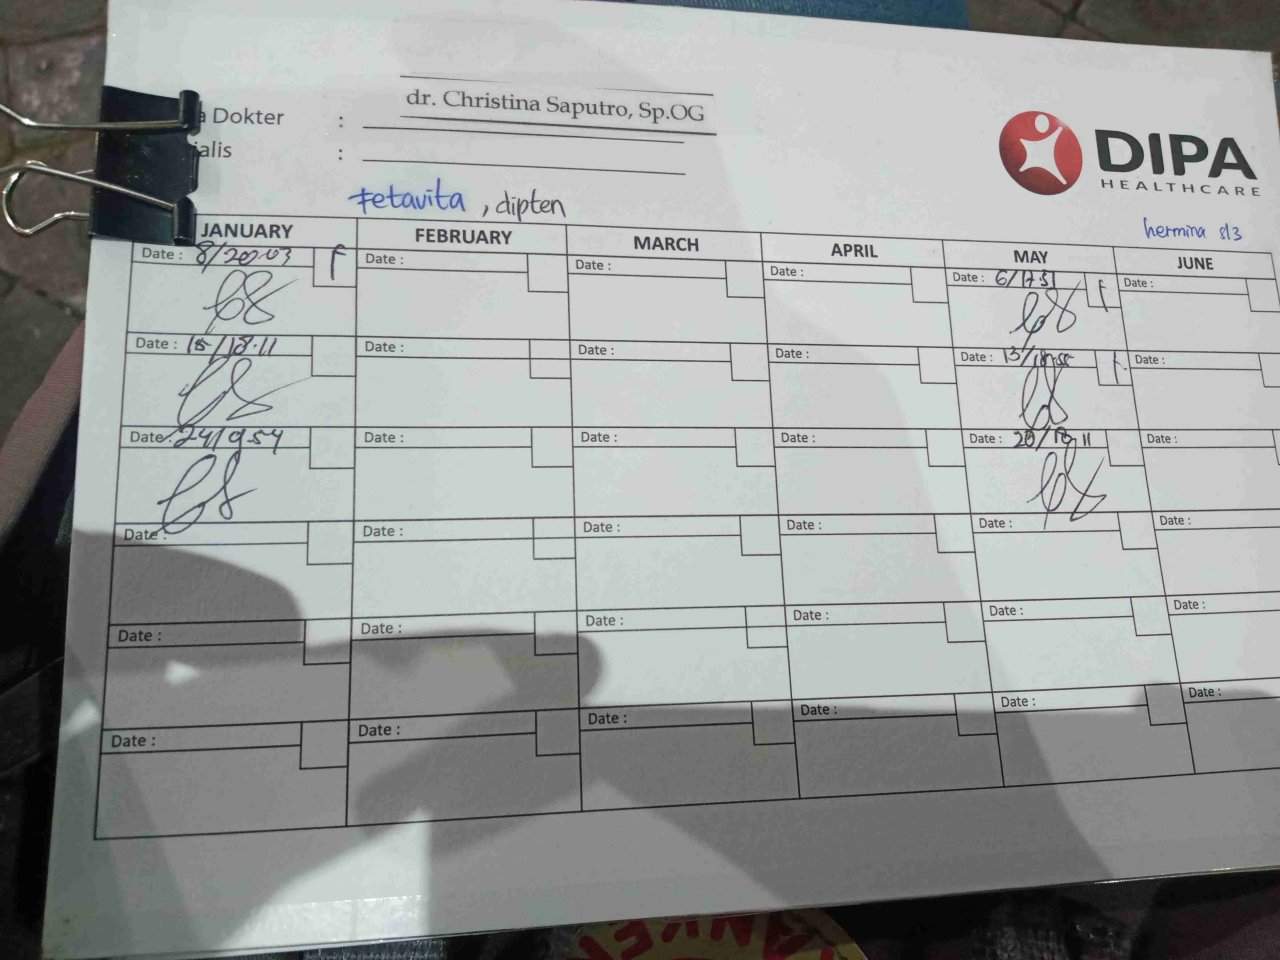 dr. Christina Saputro, Sp.OG
a Dokter :
ialis :
DIPA
HEALTHCARE
Fetavita , dipten
hermina s/3
JANUARY FEBRUARY MARCH APRIL MAY JUNE
Date : 8/20.03 F Date : Date : Date : Date : 6/17.51 f Date :
Date : 15/18.11 Date : Date : Date : Date : 13/18.55 f. Date :
Date : 24/9.54 Date : Date : Date : Date : 20/18.11 Date :
Date : Date : Date : Date : Date : Date :
Date : Date : Date : Date : Date : Date :
Date : Date : Date : Date : Date : Date :